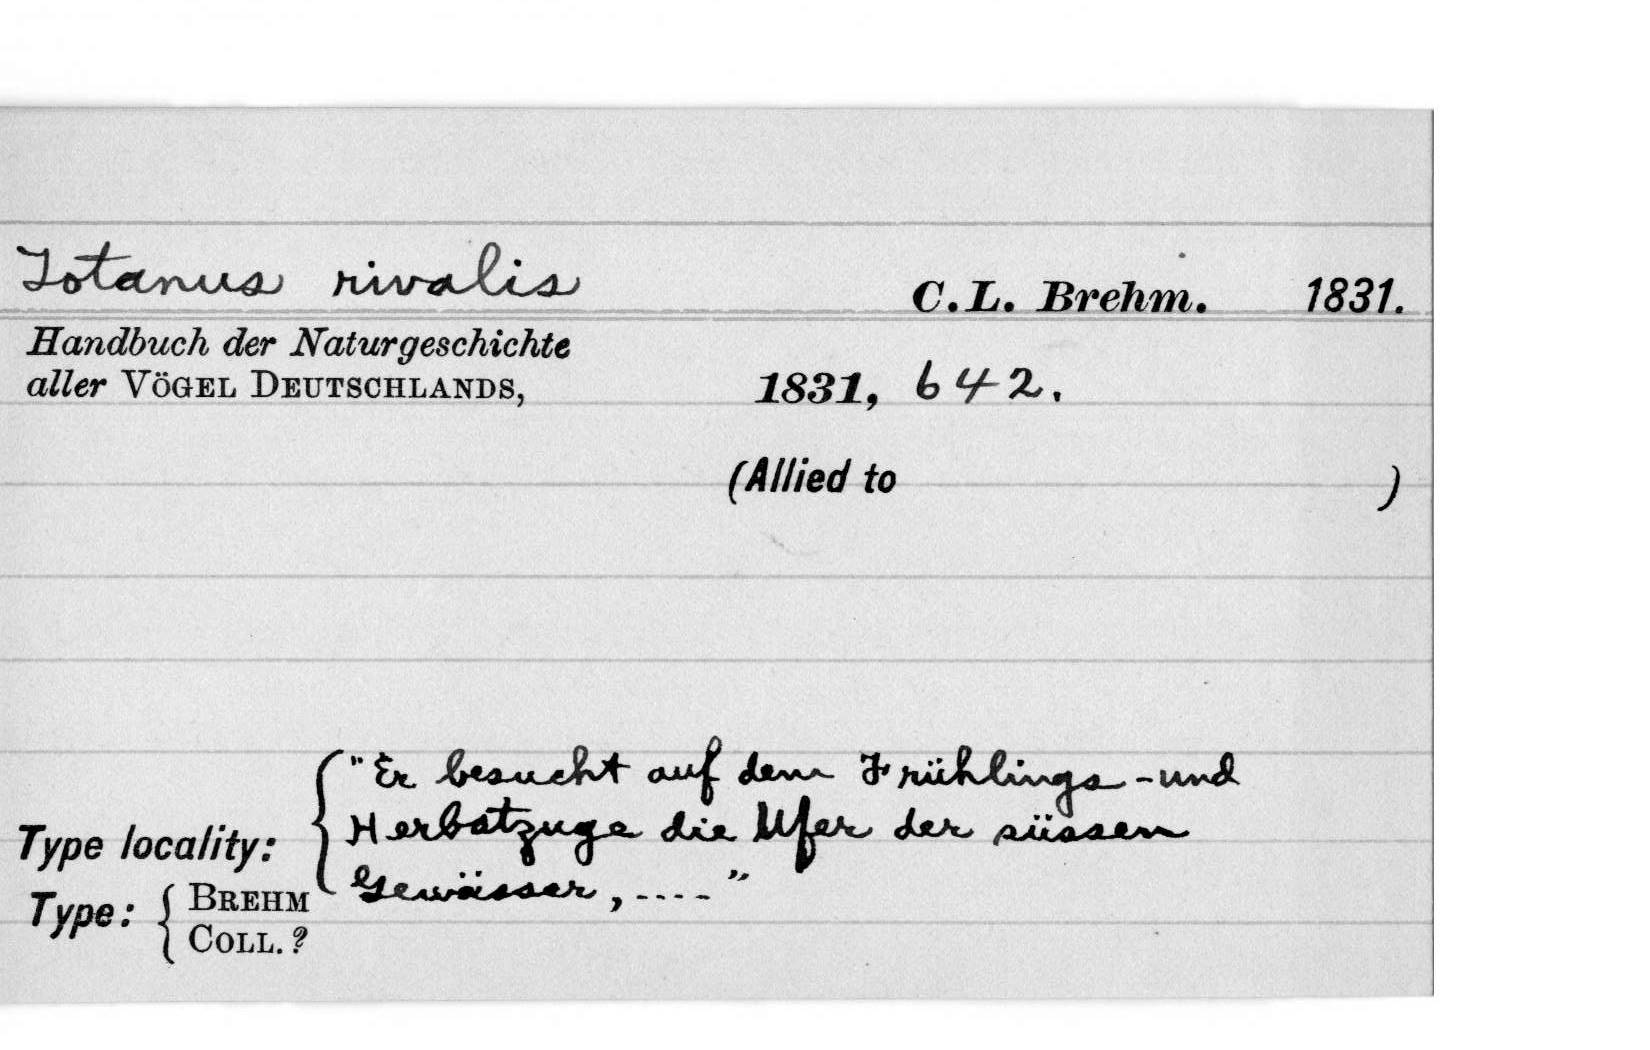 Totanus rivalis C.L. Brehm. 1831.
Handbuch der Naturgeschichte
aller VÖGEL DEUTSCHLANDS, 1831, 642.
(Allied to )
"Er besucht auf dem Frühlings-und
Type locality: Herbstzuge die Ufer der süssen
Gewässer, ...."
Type: BREHM
COLL. ?